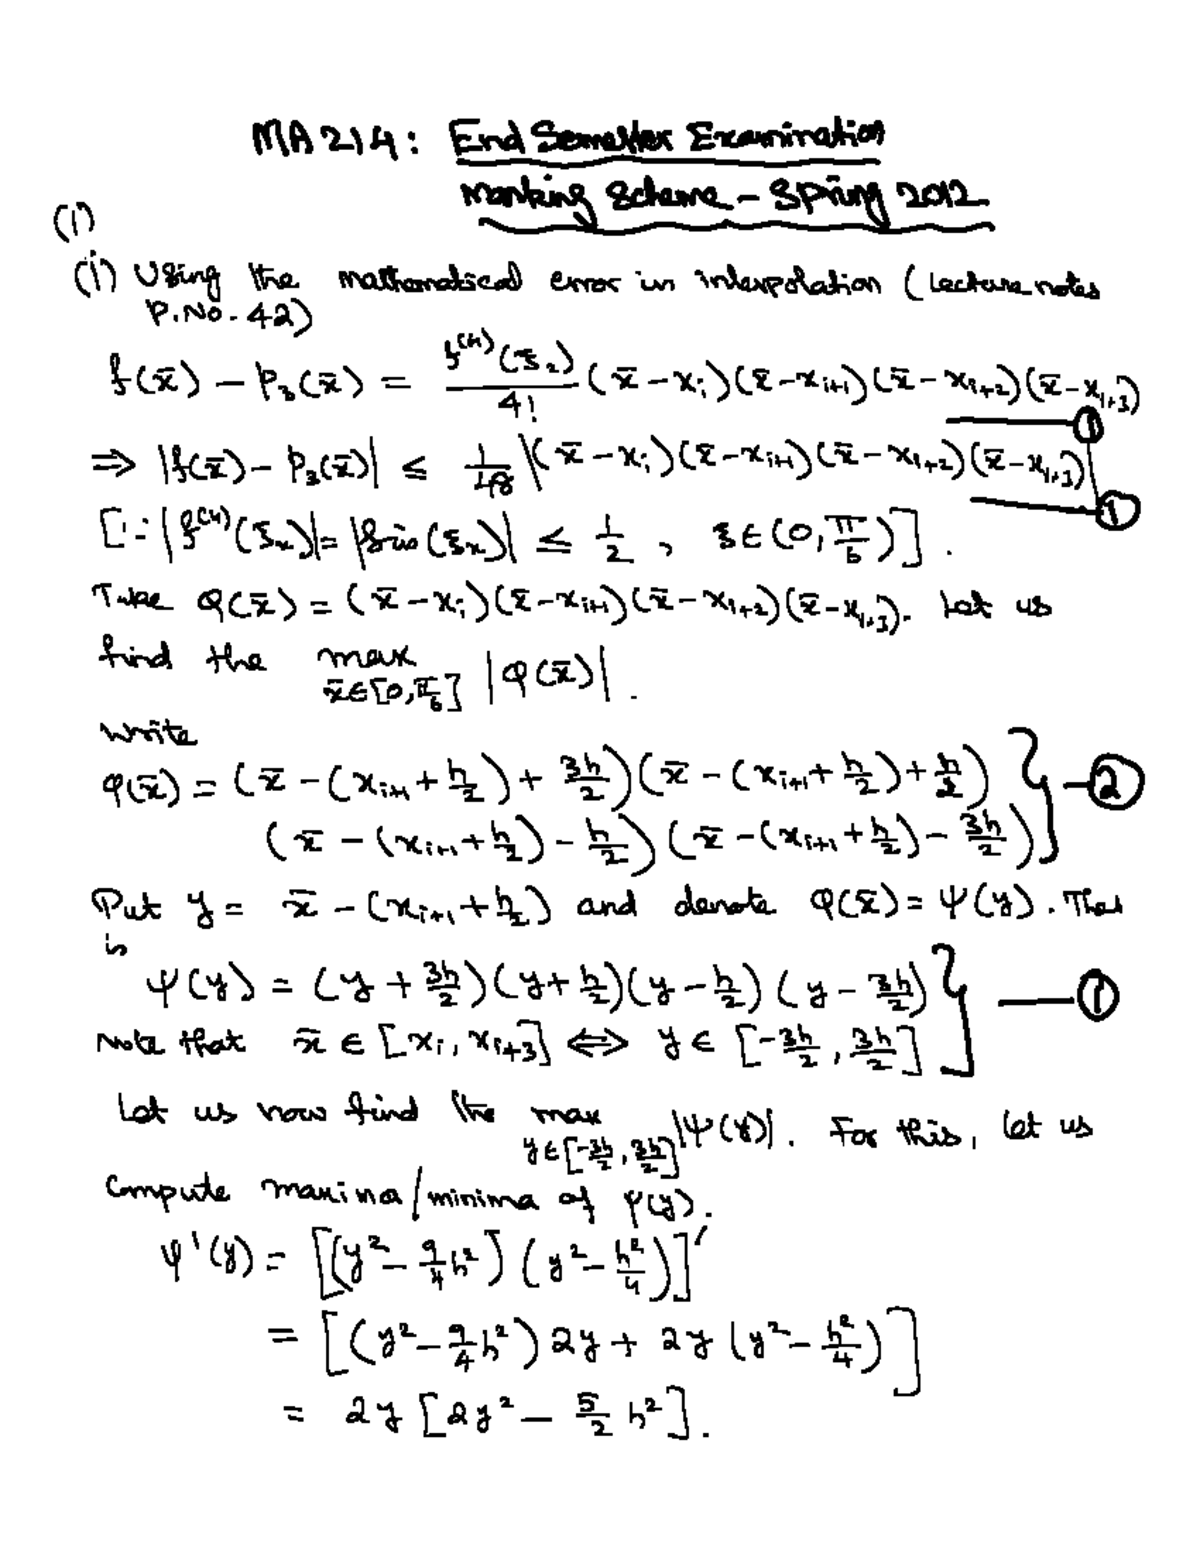 MA214: End Semester Examination
Marking Scheme - Spring 2012
(1)
(i) Using the mathematical error in interpolation (Lecture notes
P.No. 42)
f(x̄) - p₃(x̄) = f⁽⁴⁾(ξₓ)/4! (x̄-xᵢ)(x̄-xᵢ₊₁)(x̄-xᵢ₊₂)(x̄-xᵢ₊₃) —①
⇒ |f(x̄) - p₃(x̄)| ≤ 1/48 |(x̄-xᵢ)(x̄-xᵢ₊₁)(x̄-xᵢ₊₂)(x̄-xᵢ₊₃)| —①
[∵ |f⁽⁴⁾(ξₓ)| = |sin(ξₓ)| ≤ 1/2 , ξ∈(0,π/6)].
Take φ(x̄) = (x̄-xᵢ)(x̄-xᵢ₊₁)(x̄-xᵢ₊₂)(x̄-xᵢ₊₃). Let us
find the max x̄∈[0,π/6] |φ(x̄)|.
Write
φ(x̄) = (x̄ - (xᵢ₊₁ + h/2) + 3h/2)(x̄ - (xᵢ₊₁ + h/2) + h/2) } —②
(x̄ - (xᵢ₊₁ + h/2) - h/2)(x̄ - (xᵢ₊₁ + h/2) - 3h/2)
Put y = x̄ - (xᵢ₊₁ + h/2) and denote φ(x̄) = ψ(y). That
is
ψ(y) = (y + 3h/2)(y + h/2)(y - h/2)(y - 3h/2) } —①
Note that x̄ ∈ [xᵢ, xᵢ₊₃] ⇔ y ∈ [-3h/2, 3h/2]
Let us now find the max y∈[-3h/2, 3h/2] |ψ(y)|. For this, let us
Compute maxima/minima of ψ(y).
ψ'(y) = [(y² - 9/4 h²)(y² - h²/4)]'
= [(y² - 9/4 h²) 2y + 2y (y² - h²/4)]
= 2y [2y² - 5/2 h²].